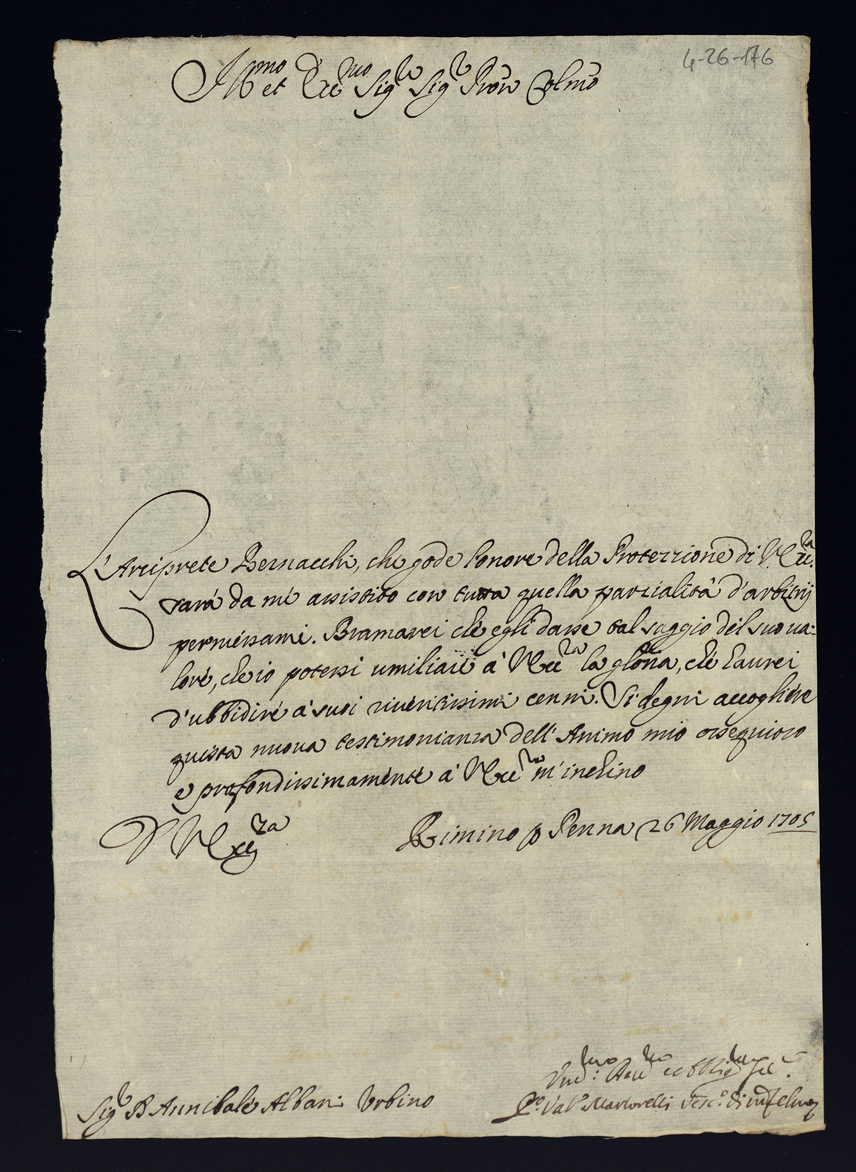 4-26-176
Ill.mo et Ecc.mo Sig.re Sig.r Pron Colmo
L'Arciprete Bernacchi, che gode l'onore della Protezzione di V. Ecc.za
sarà da mé assistito con tutta quella parzialità d'arbitrij
permessami. Bramarei ché egli dasse tal saggio del suo ua-
lore, che io potessi umiliare à V. Ecc.za la gloria, ché haurei
d'ubbidire à suoi riueritissimi cenni. Si degni accogliere
questa nuova testimonianza dell'Animo mio ossequioso
e profondissimamente à V. Ecc.za m'inchino
D V. Ecc.za
Rimino p Penna 26 Maggio 1705
Sig.r D Annibale Albani Urbino
Um.mo Deu.mo et Obblig.mo Ser.e
Pro Val.o Martorelli Vesc.o di Mfeltro